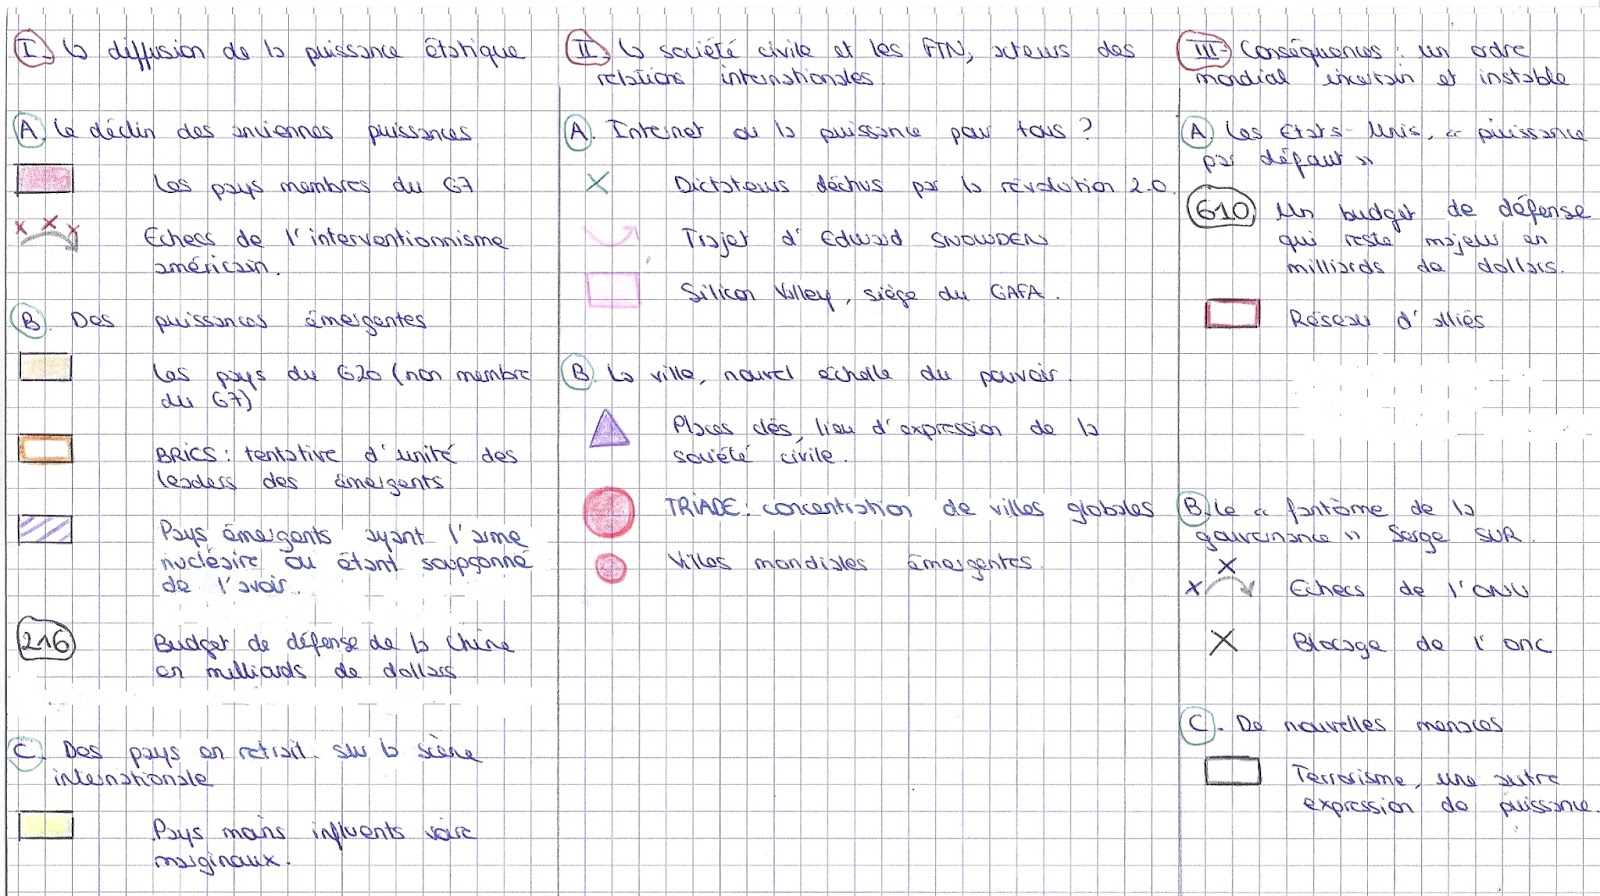 I. La diffusion de la puissance étatique
A. Le déclin des anciennes puissances
Les pays membres du G7
Echecs de l'interventionnisme
américain.
B. Des puissances émergentes
Les pays du G20 (non membre
du G7)
BRICS : tentative d'unité des
leaders des émergents
Pays émergents ayant l'arme
nucléaire ou étant soupçonné
de l'avoir.
216 Budget de défense de la Chine
en milliards de dollars
C. Des pays en retrait sur la scène
internationale
Pays moins influents voire
marginaux.
II. La société civile et les FTN, acteurs des
relations internationales.
A. Internet ou la puissance pour tous ?
Dictateurs déchus par la révolution 2.0.
Trajet d'Edward SNOWDEN
Silicon Valley, siège du GAFA.
B. La ville, nouvel échelle du pouvoir.
Places clés, lieu d'expression de la
société civile.
TRIADE : concentration de villes globales
Villes mondiales émergentes.
III- Conséquences : un ordre
mondial incertain et instable
A. Les Etats-Unis, « puissance
par défaut »
610 Un budget de défense
qui reste majeur en
milliards de dollars.
Réseau d'alliés
B. Le « fantôme de la
gouvernance » Serge SUR.
Echecs de l'ONU
Blocage de l'OMC
C. De nouvelles menaces
Terrorisme, une autre
expression de puissance.